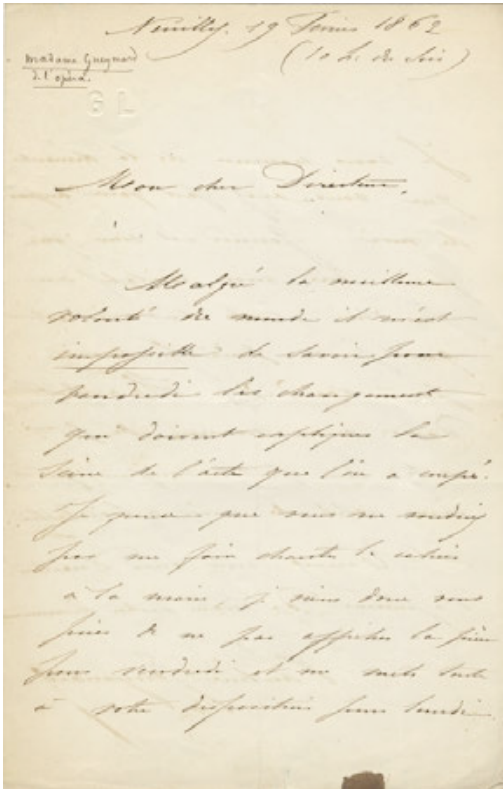 Neuilly. 19 Février 1862
(10 h. du soir)
Madame Gueymard
de l'opéra.
GL
Mon cher Directeur,
Malgré la meilleure
volonté du monde il m'est
impossible de savoir pour
vendredi les changement
qui doivent expliquer la
scène de l'acte que l'on a coupé.
Je pense que vous ne voudriez
pas me faire chanter le cahier
à la main je viens donc vous
prier de ne pas afficher la pièce
pour vendredi et me mets toute
à votre disposition pour lundi